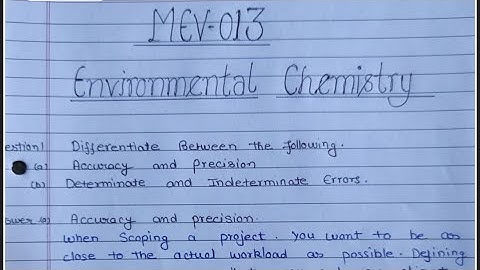 MEV-013
Environmental Chemistry
estion 1 Differentiate Between the following.
(a) Accuracy and Precision
(b) Determinate and Indeterminate Errors.
swer (a) Accuracy and precision.
When Scoping a project. You want to be as
close to the actual workload as possible. Defining